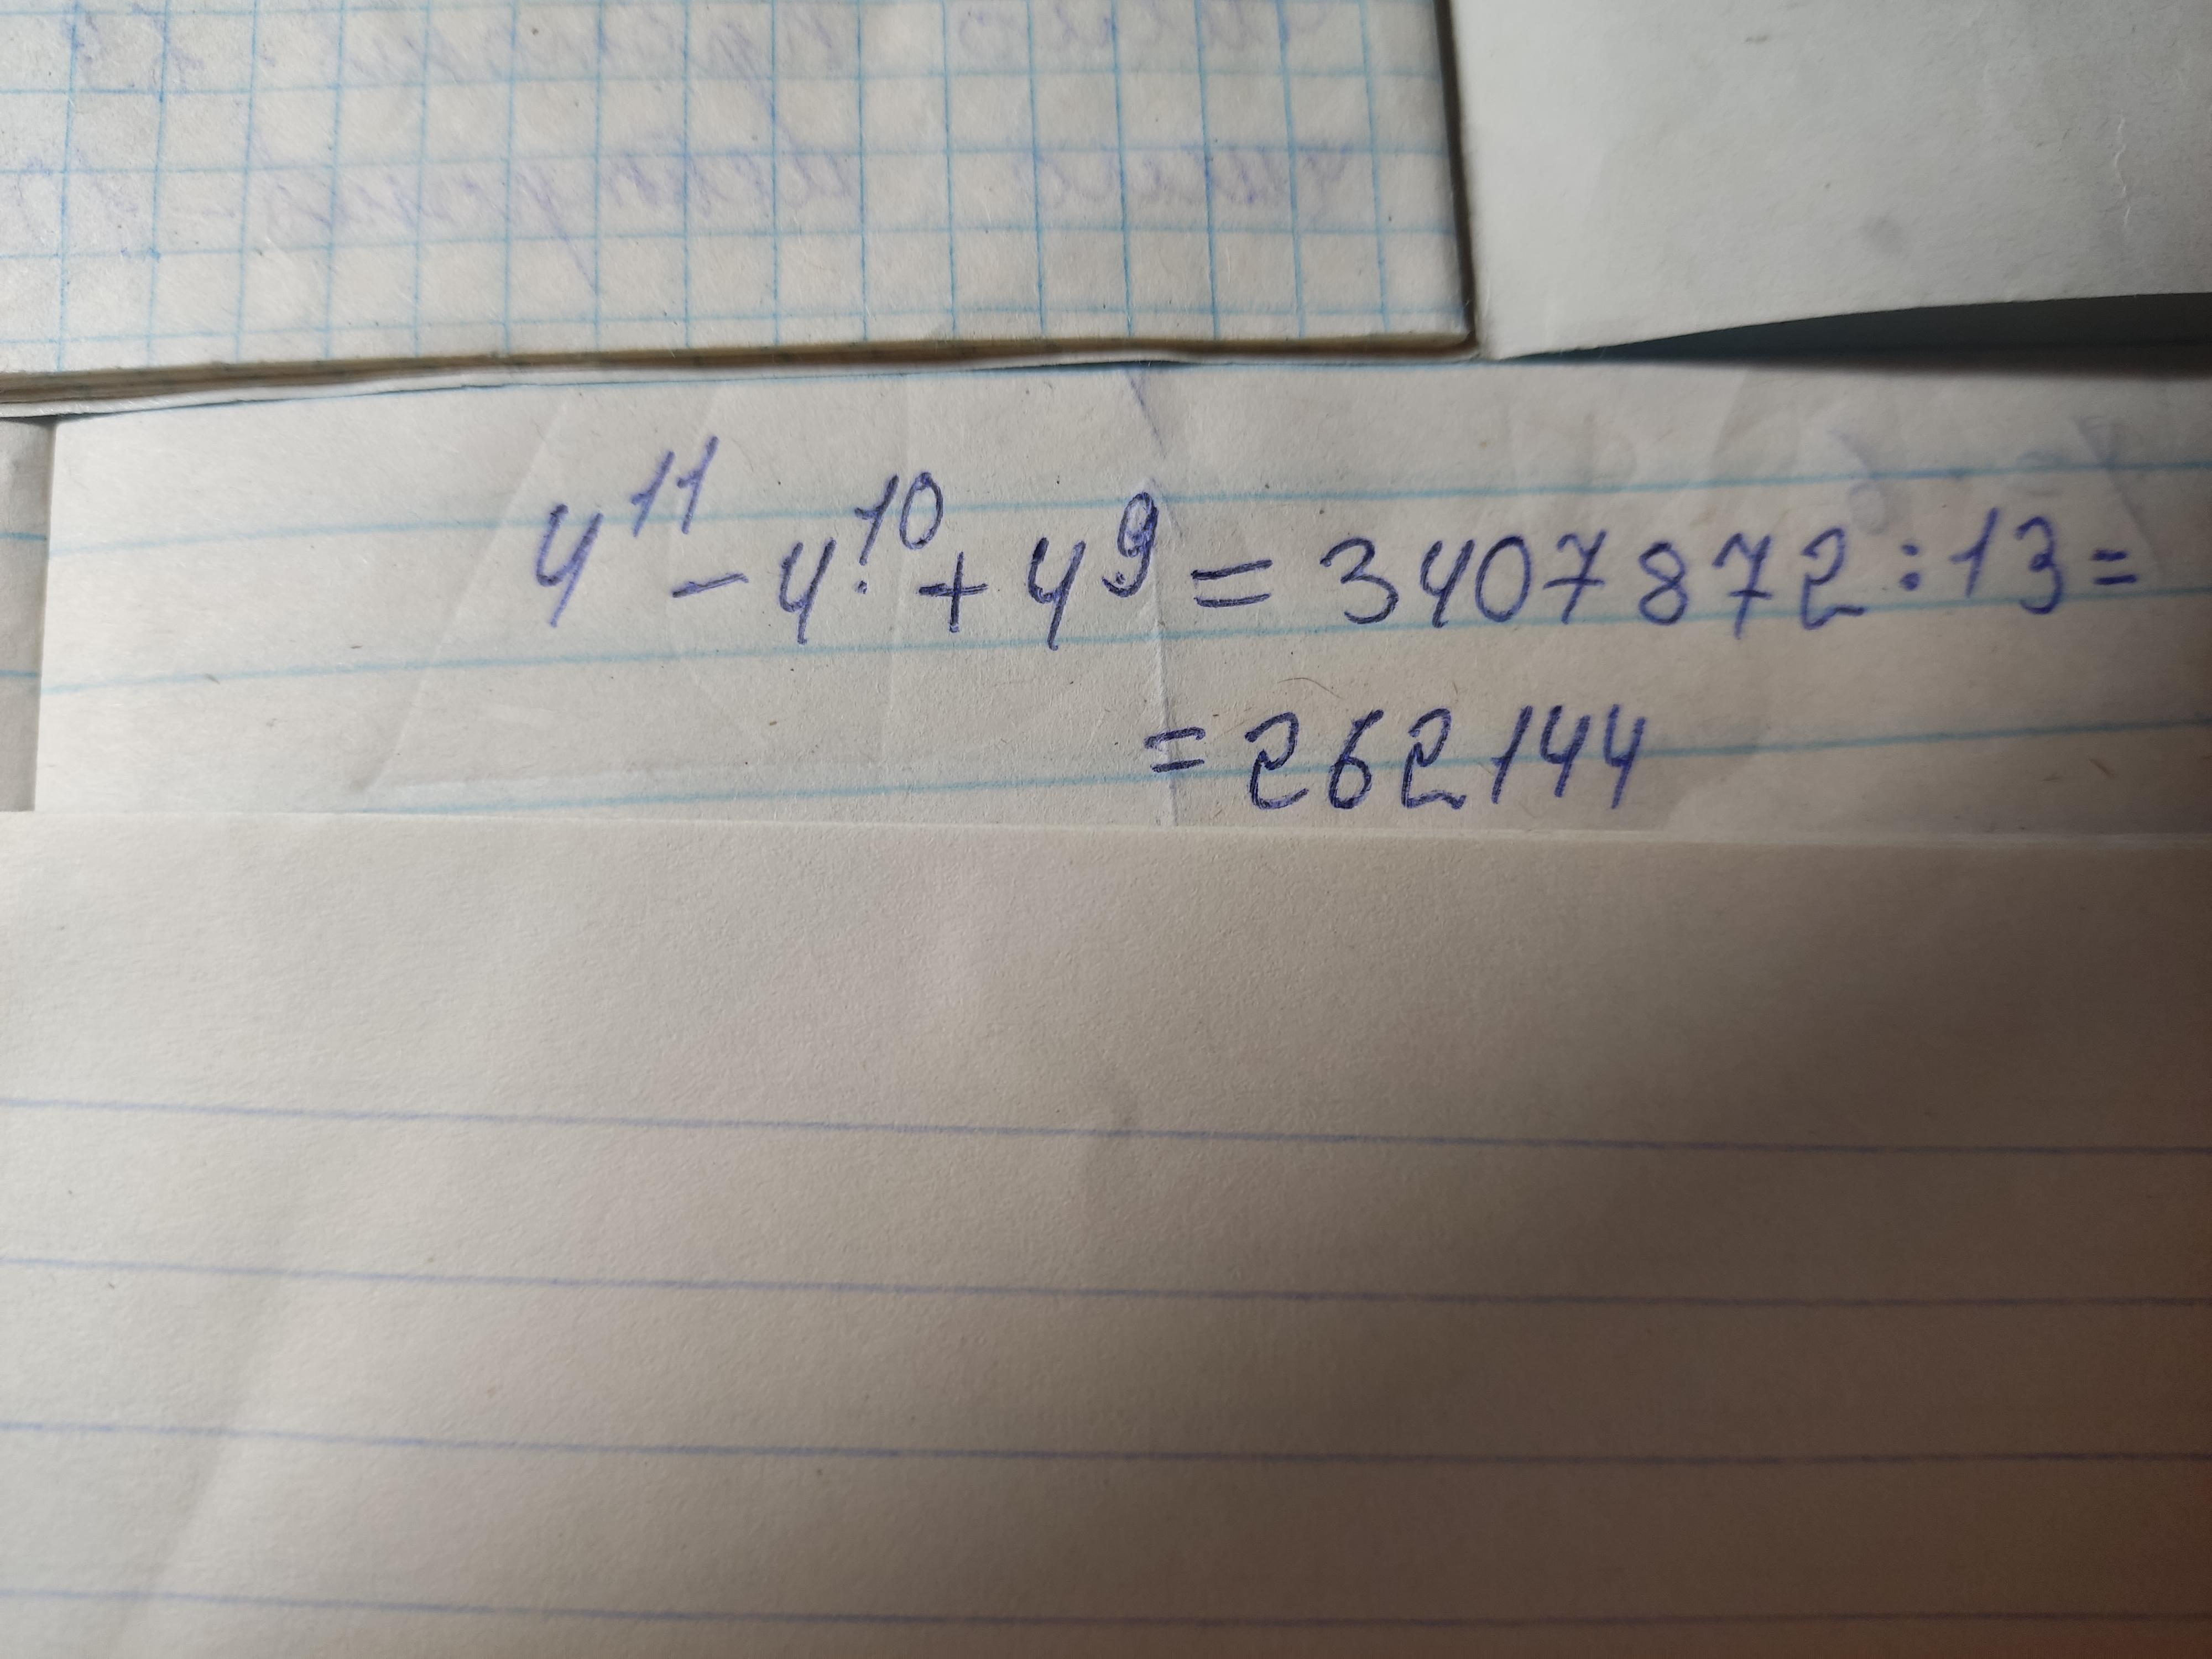 4¹¹ - 4¹⁰ + 4⁹ = 3407872 : 13 =
= 262144